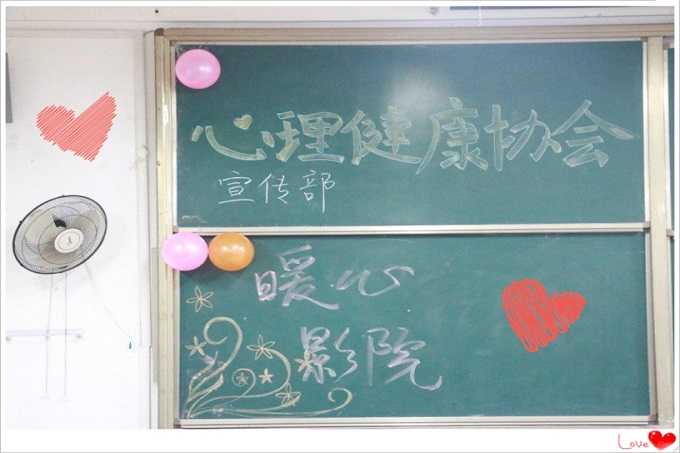 心理健康协会
宣传部
暖心
影院
Love